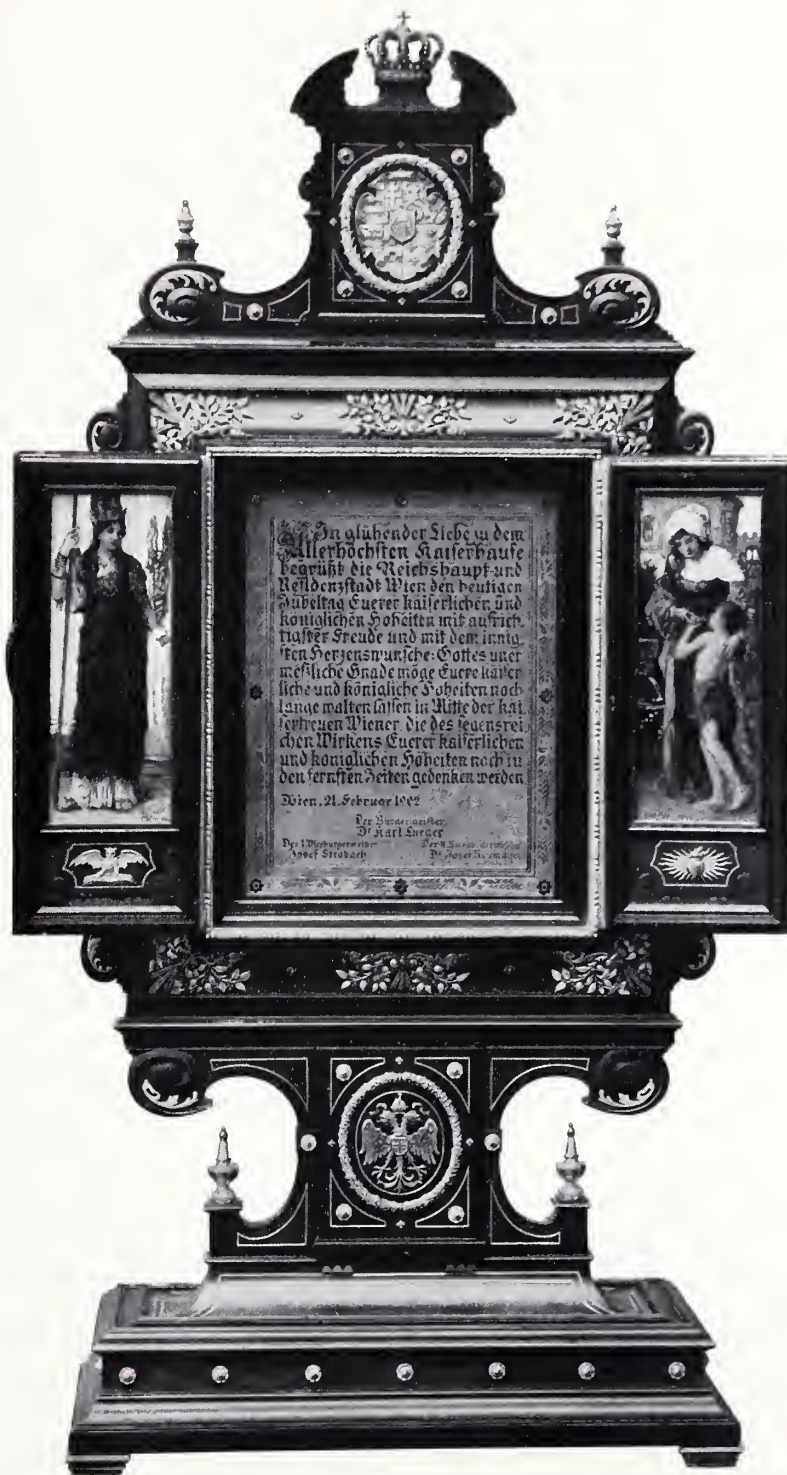 In glühender Liebe zu dem
Allerhöchsten Kaiserhause
begrüßt die Reichshaupt-und
Residenzstadt Wien den heutigen
Jubeltag Euerer kaiserlichen und
königlichen Hoheiten mit aufrich
tigster Freude und mit dem innig
sten Herzenswunsche: Gottes uner
meßliche Gnade möge Euere kaiser
liche und königliche Hoheiten noch
lange walten lassen in Mitte der kai
sertreuen Wiener, die des segensrei
chen Wirkens Euerer kaiserlichen
und königlichen Hoheiten noch in
den fernsten Zeiten gedenken werden
Wien, 21. Februar 1902
Der Bürgermeister
Dr Karl Lueger
Der I. Vizebürgermeister
Josef Strobach
Der II. Vizebürgermeister
Dr Josef Neumayer